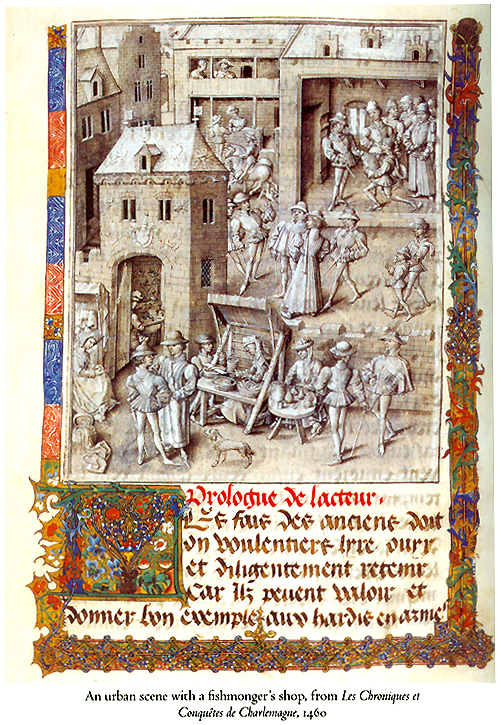 Prologue de lacteur.
Les fais des anciens doit
on voulentiers lyre ouyr
et diligentement retenir
Car ilz peuent valoir et
donner bon exemple aux hardis en armes
An urban scene with a fishmonger's shop, from Les Chroniques et
Conquêtes de Charlemagne, 1460